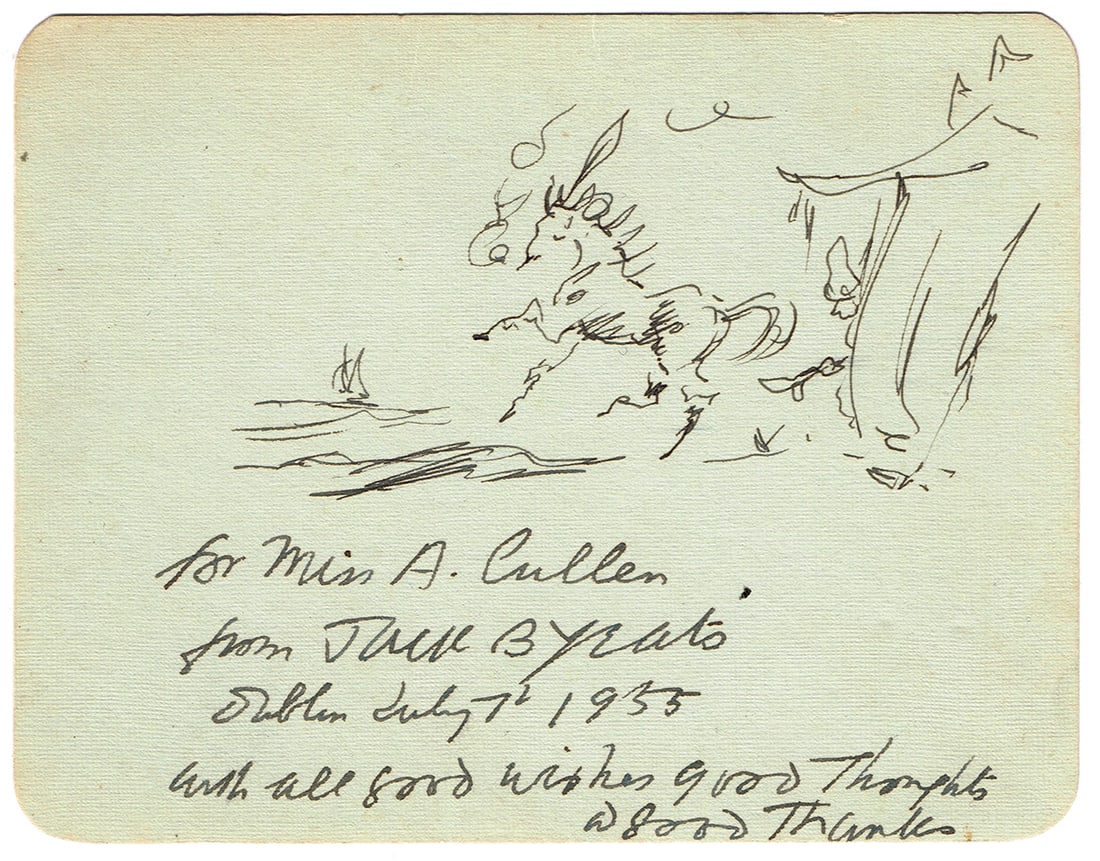 for Miss A. Cullen
from Jack B Yeats
Dublin July 7th 1955
with all good wishes good Thoughts
& good Thanks